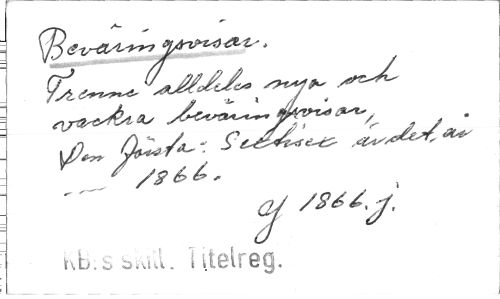 Beväringsvisar.
Trenne alldeles nya och
vackra beväringsvisar,
Den första: Sextisex är det år
— 1866.
1866. j.
KB:s skill. Titelreg.